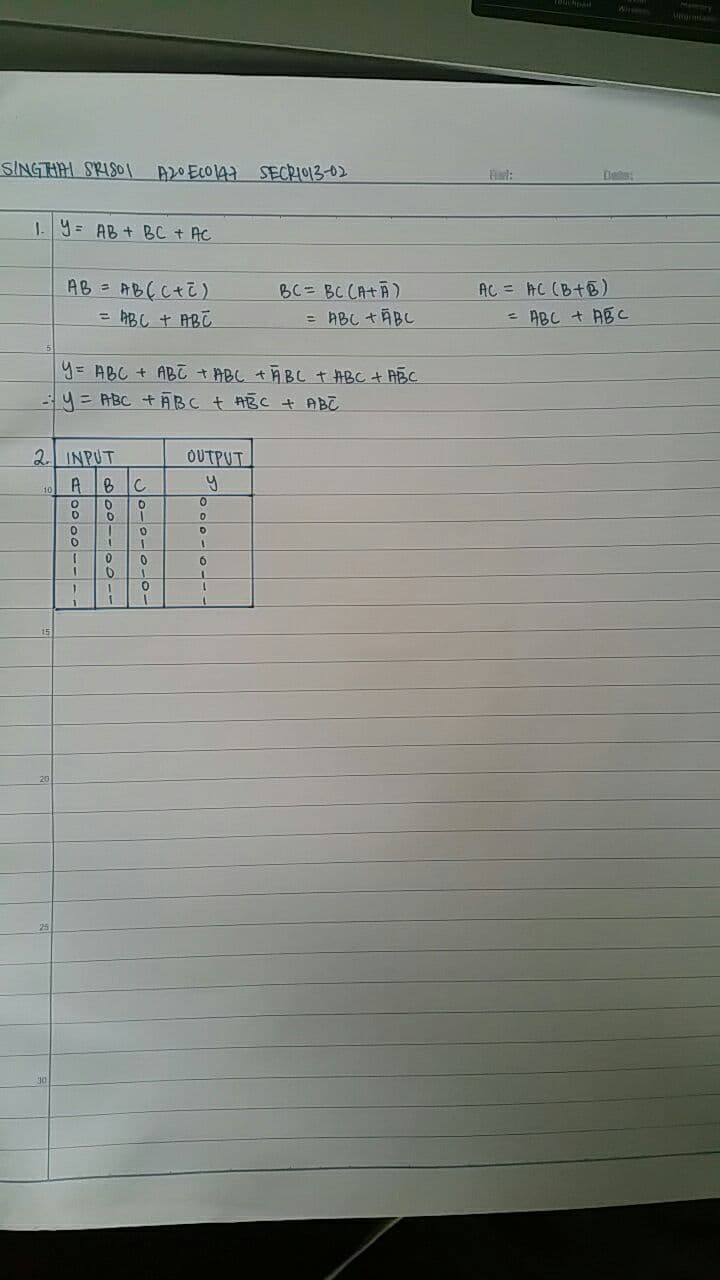 Touchpad
SINGTHAI SRISOI A20EC0147 SECR1013-02 Ref: Date:
1. y = AB + BC + AC
AB = AB(C+C̄) BC = BC(A+Ā) AC = AC(B+B̄)
= ABC + ABC̄ = ABC + ĀBC = ABC + AB̄C
5
y = ABC + ABC̄ + ABC + ĀBC + ABC + AB̄C
∴ y = ABC + ĀBC + AB̄C + ABC̄
2. INPUT OUTPUT
10 A B C y
0 0 0 0
0 0 1 0
0 1 0 0
0 1 1 1
1 0 0 0
1 0 1 1
1 1 0 1
1 1 1 1
15
20
25
30